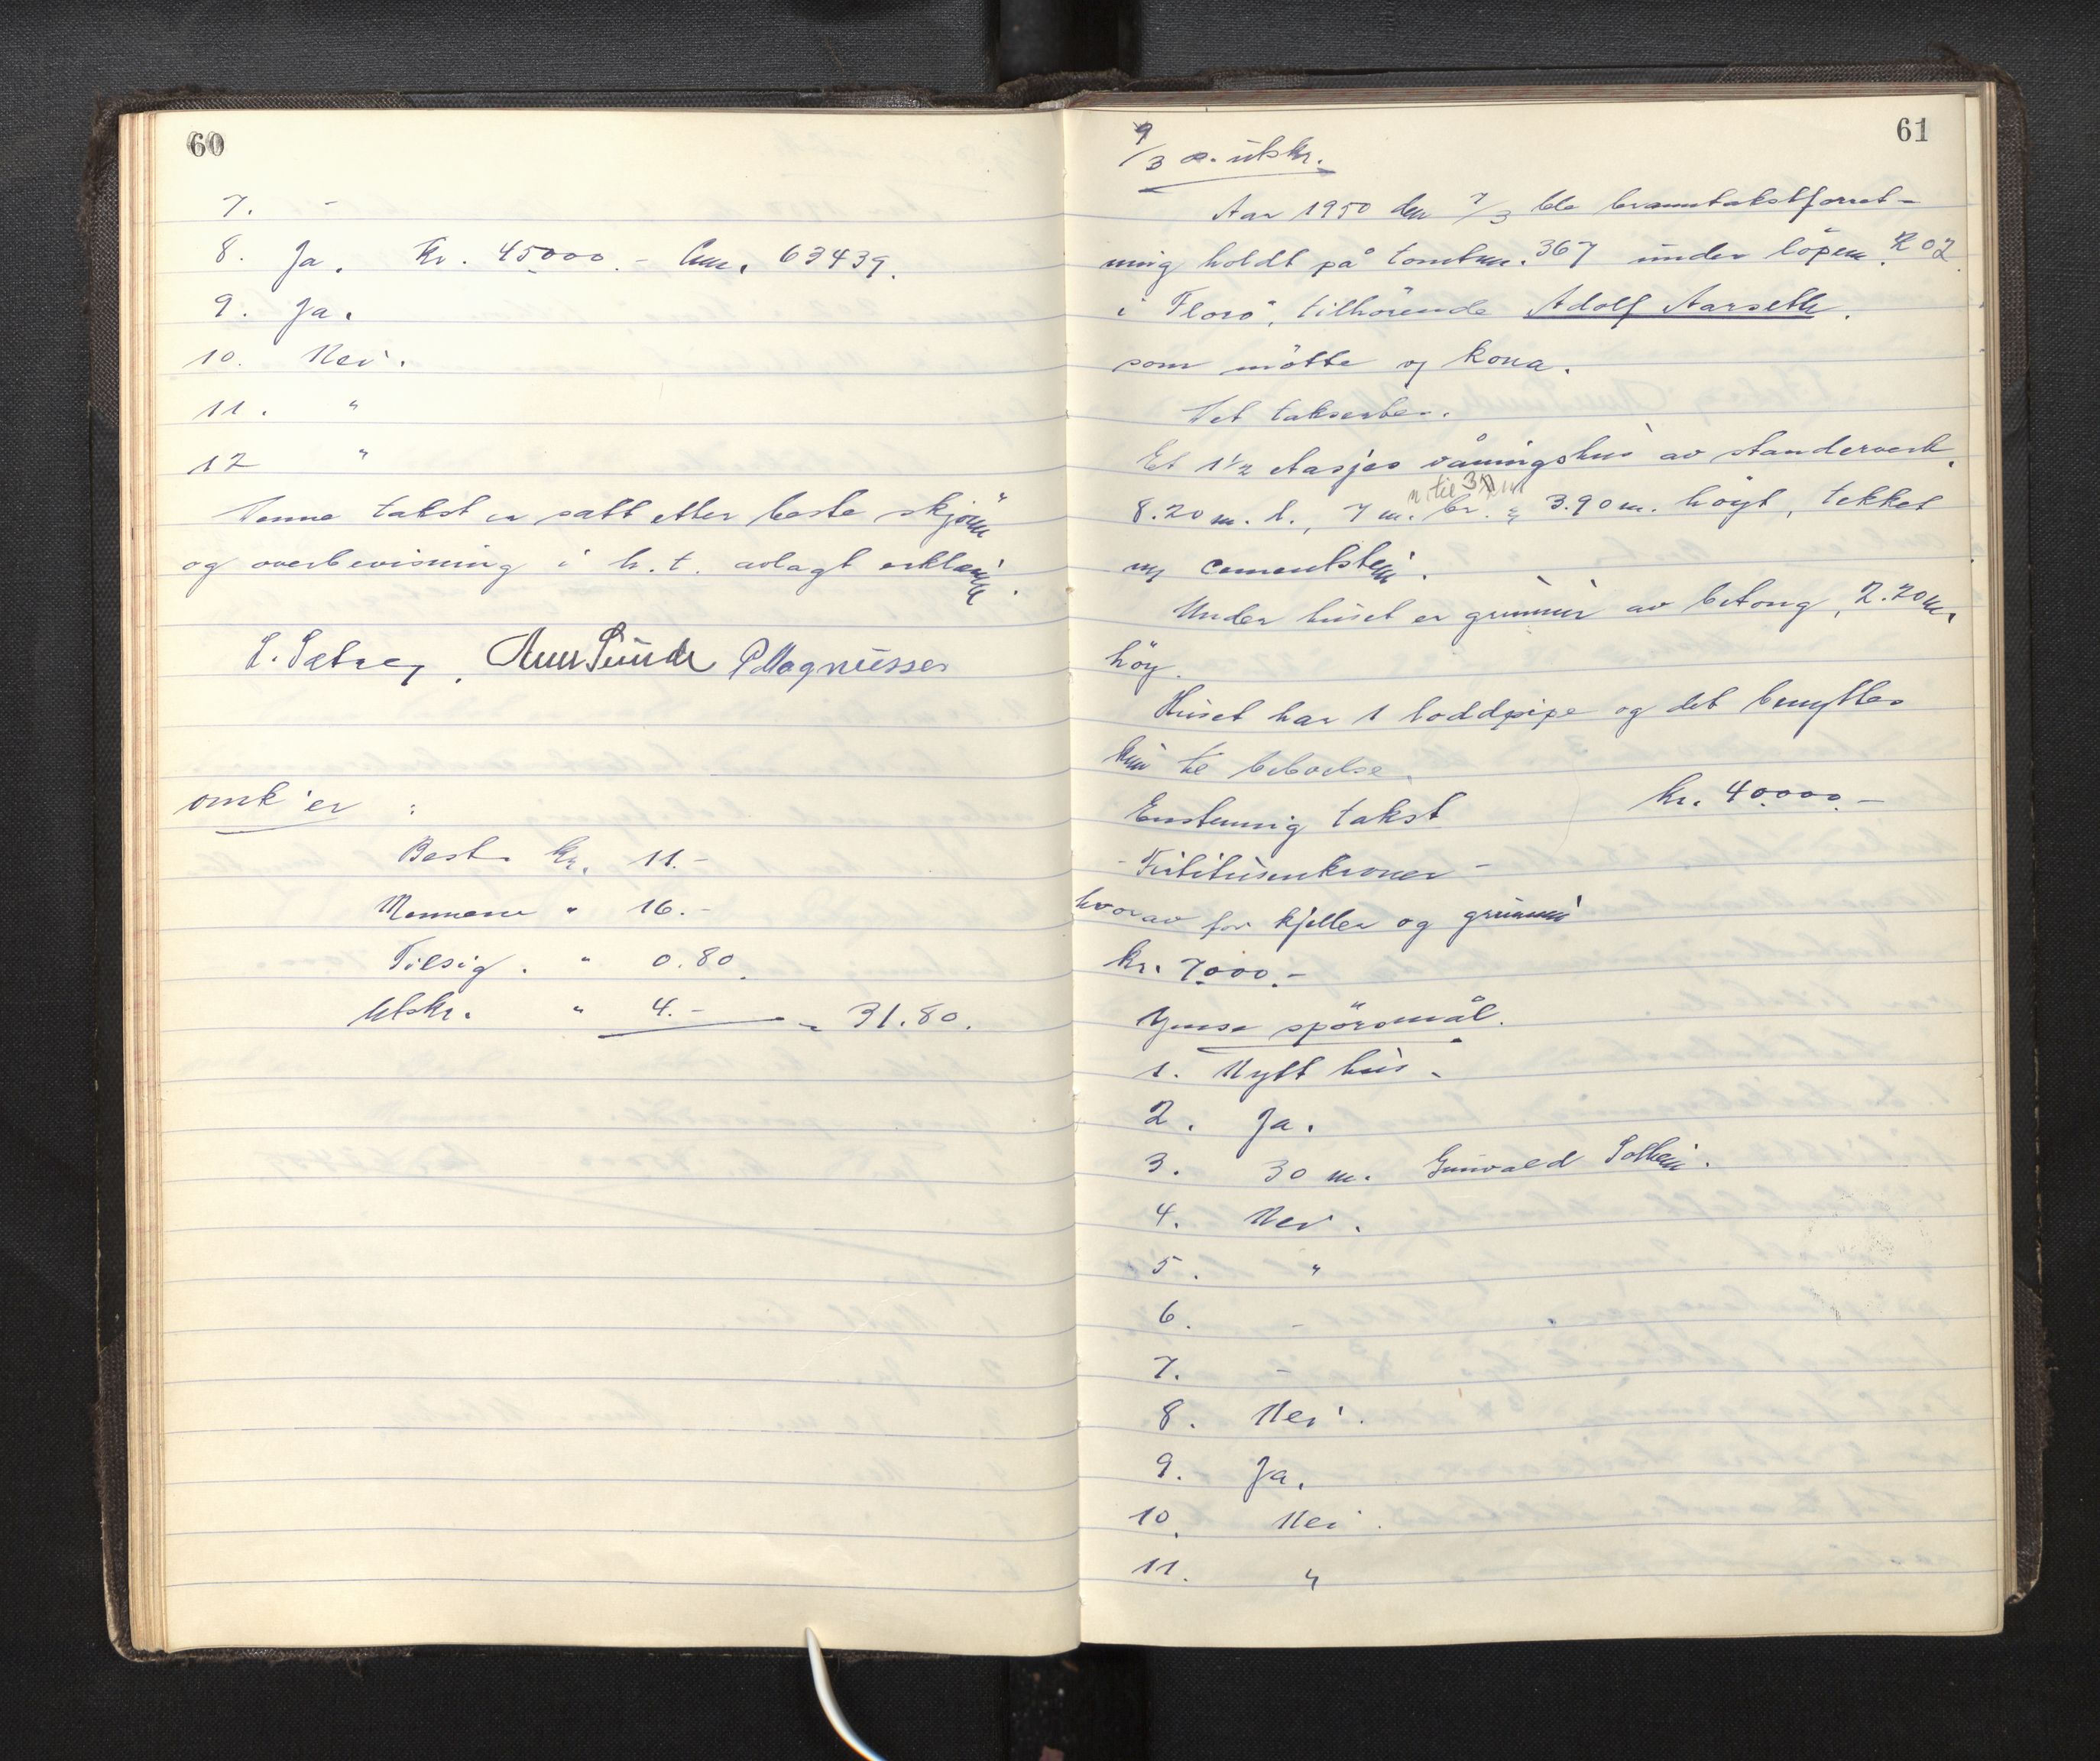 60
7. -
8. Ja. Kr. 45000.- Anm. 63439.
9. Ja.
10. Nei.
11. "
12 "
Denne takst er satt etter beste skjönn
og overbevisning i h.t. avlagt erklæring.
S. Sætrey, P Magnussen
omk'er :
Best. kr. 11.-
Mennene " 16.-
Tilsig. " 0.80.
Utskr. " 4.- = 31.80.
61
9/3 s. utskr.
Aar 1950 den 7/3 ble branntakstforret-
ning holdt på tomtnr. 367 under löpenr. 202
i Florö, tilhörende Adolf Aarseth.
som mötte og kona.
Det takseres.
Et 1 1/2 etasjes våningshus av standerverk
8.20 m. l., 7 m. br. & 3.90 m. höyt, tekket
m/ cementstein.
Under huset er grunnmur av betong, 2.20 m.
höy.
Huset har 1 loddpipe og det benyttes
kun til beboelse.
Enstemmig takst kr. 40.000.-
- Firtitusenkroner -
hvorav for kjeller og grunnmur
kr. 7.000.-
Ymse spörsmål.
1. Nytt hus.
2. Ja.
3. 30 m. Gunvald Solheim.
4. Nei.
5. "
6. -
7. -
8. Nei.
9. Ja.
10. Nei.
11. "